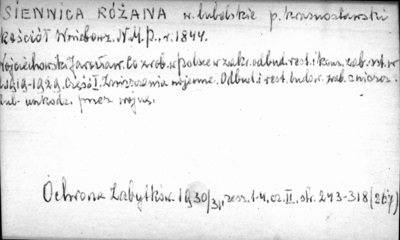 SIENNICA RÓŻANA w. lubelskie p. krasnostawski
kościół Wniebowz. N.M.P. r. 1844.
Wojciechowski Jarosław. Co zrob. w Polsce w zakr. odbud. rest. i kons. zab. szt. w
l. 1919-1929. Część I. Zniszczenia wojenne. Odbud. i rest. budow. zab. zniszcz.
lub uszkodz. przez wojnę.
Ochrona Zabytków. 1930/31, zesz. 1-4, cz. II, str. 243-318 (267)